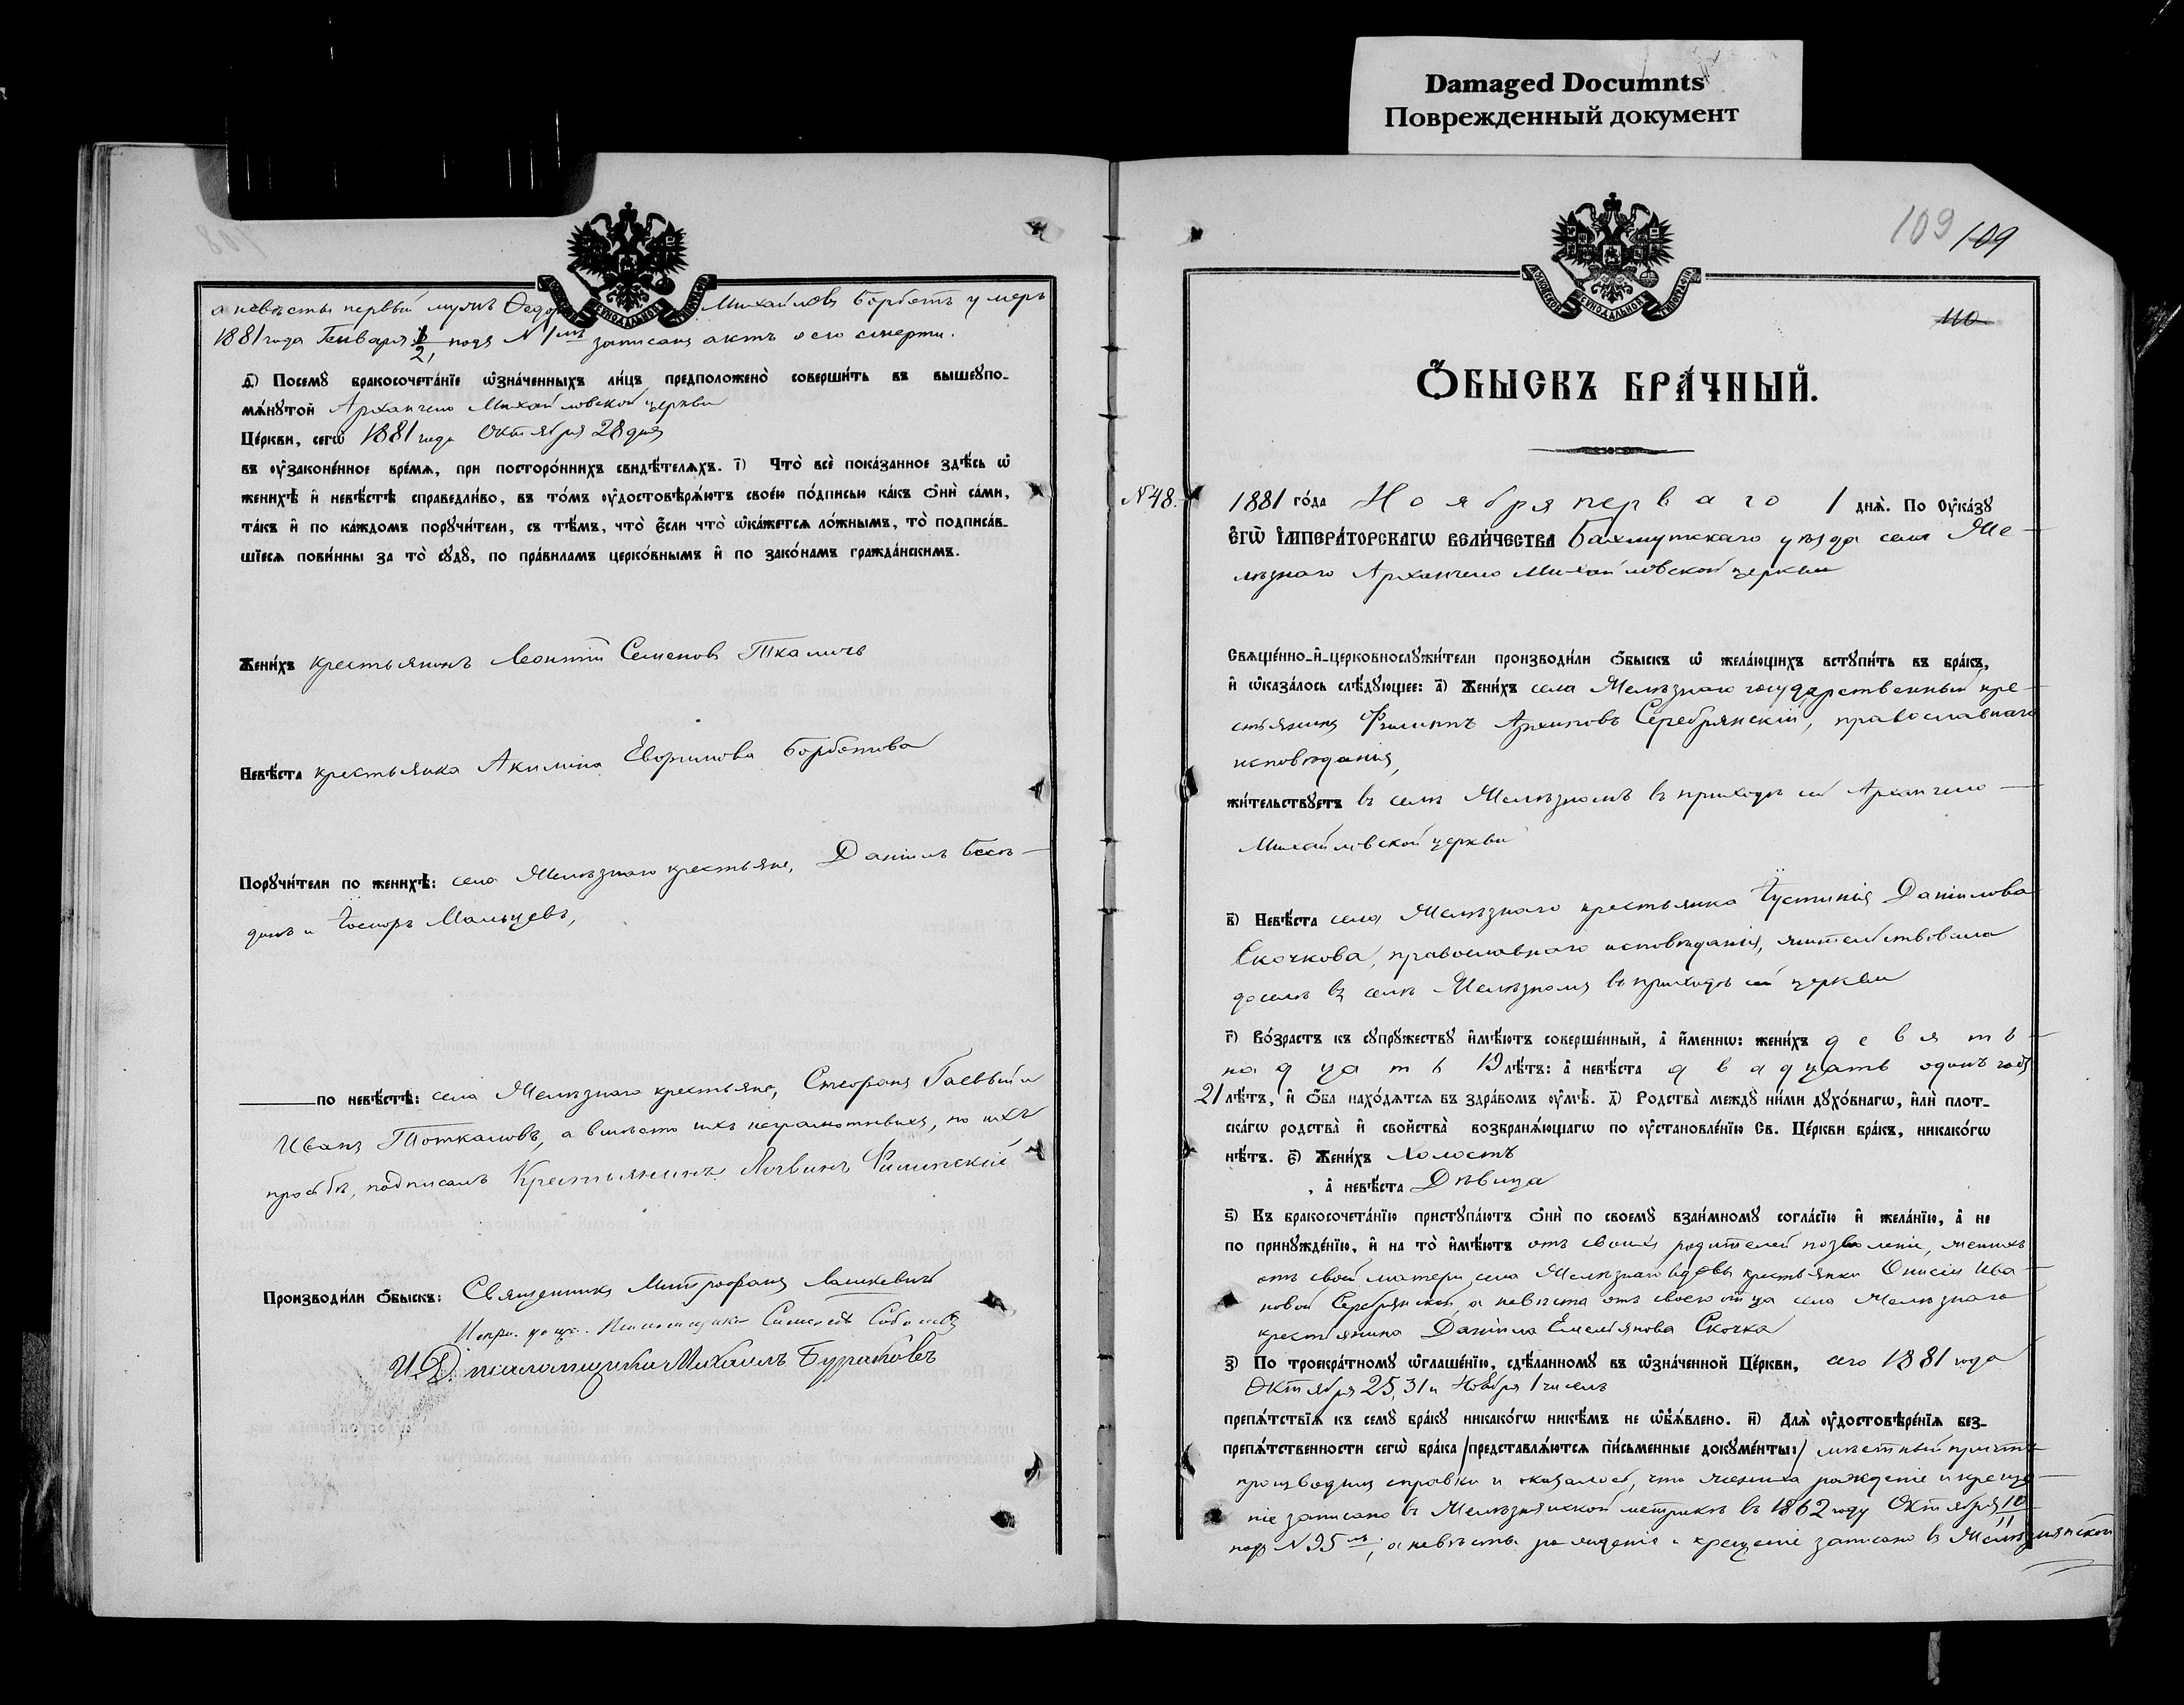 Damaged Documnts
Поврежденный документ
а невѣсты первый мужъ Ѳедоръ Михайловъ Борбетъ умеръ
1881 года Генваря 1/2, подъ N 1мъ записанъ актъ о его смерти.
д҃) Посемꙋ̀ бракосочета́нїе ѡ҆зна́ченныхъ ли́цъ предположено̀ соверши́ть въ вышеꙋпо-
мѧ́нꙋтой Архангело Михайловской церкви
Це́ркви, сегѡ̀ 1881 года Октября 28 дня
въ ᲂу҆зако́ненное вре́мѧ, при посторо́ннихъ свидѣ́телѧхъ. і҃) Что̀ всѐ пока́занное здѣ́сь ѡ҆
женихѣ̀ и҆ невѣ́стѣ справедли́во, въ то́мъ ᲂу҆достовѣрѧ́ютъ свое́ю по́дписью ка́къ ѻ҆нѝ са́ми,
та́къ и҆ по ка́ждомъ порꙋчи́тели, съ тѣ́мъ, что̀ є҆́сли что̀ ѡ҆ка́жетсѧ ло́жнымъ, то̀ подписа́в-
шїесѧ пови́нны за то̀ сꙋдꙋ̀, по пра́виламъ церко́внымъ и҆ по зако́намъ гражда́нскимъ.
Жени́хъ крестьянинъ Леонтій Семеновъ Ткаличъ
Невѣ́ста крестьянка Акилина Евфимова Борбетова
Порꙋчи́тели по женихѣ̀: села Желѣзнаго крестьяне, Даніилъ Бесѣ-
динъ и Іосифъ Мальцевъ,
по невѣ́стѣ: села Желѣзнаго крестьяне, Стефанъ Гаевый и
Иванъ Тоткаловъ, а вмѣсто ихъ неграмотныхъ, по ихъ
просьбѣ, подписалъ Крестьянинъ Логвинъ Филинскій
Производи́ли ѻ҆́быскъ: Священникъ Митрофанъ Лашкевичъ
Псаломщикъ
И.Д. псаломщика Михаилъ Бураковъ
109 109
110
Ѻ҆́БЫСКЪ БРА́ЧНЫЙ.
N 48.
1881 го́да Ноября перваго 1 днѧ̀. По Оу҆ка́зꙋ
Є҆гѡ̀ И҆мпера́торскагѡ Вели́чества Бахмутскаго уѣзда села Же-
лѣзнаго Архангело Михайловской церкви
Свѧще́нно-и҆-церковнослꙋжи́тели производи́ли ѻ҆́быскъ ѡ҆ жела́ющихъ встꙋпи́ть въ бра́къ,
и҆ ѡ҆каза́лось слѣ́дꙋющее: а҃) Жени́хъ села Желѣзнаго государственный кре-
стьянинъ Филиппъ Архиповъ Серебрянскій, православнаго
исповѣданія,
жи́тельствꙋетъ въ селѣ Желѣзномъ въ приходѣ сей Архангело-
Михайловской церкви
в҃) Невѣ́ста села Желѣзнаго крестьянка Іустинія Даніилова
Скочкова, православнаго исповѣданія, жительствовала
доселѣ въ селѣ Желѣзномъ въ приходѣ сей церкви
г҃) Во́зрастъ къ сꙋпрꙋ́жествꙋ и҆мѣ́ютъ соверше́нный, а҆ и҆́меннѡ: жени́хъ девят-
надцать 19 лѣ́тъ: а҆ невѣ́ста двадцать одинъ годъ
21 лѣ́тъ, и҆ ѻ҆́ба нахо́дѧтсѧ въ здра́вомъ ᲂу҆мѣ̀. д҃) Родства̀ междꙋ̀ ни́ми дꙋхо́внагѡ, и҆лѝ плот-
ска́гѡ родства̀ и҆ свойства̀ возбранѧ́ющагѡ по ᲂу҆становле́нїю Св. Це́ркви бра́къ, никако́гѡ
нѣ́тъ. є҃) Жени́хъ Холостъ
, а҆ невѣ́ста Дѣвица
ѕ҃) Къ бракосочета́нїю пристꙋпа́ютъ ѻ҆нѝ по своемꙋ̀ взаи́мномꙋ согла́сїю и҆ жела́нїю, а҆ не
по принꙋжде́нїю, и҆ на то̀ и҆мѣ́ютъ отъ своихъ родителей позволеніе, женихъ
отъ своей матери села Желѣзнаго вдовы крестьянки Онисіи Ива-
новой Серебрянской, а невѣста отъ своего отца села Желѣзнаго
крестьянина Даніила Емельянова Скочка
з҃) По троекра́тномꙋ ѡ҆глаше́нїю, сдѣ́ланномꙋ въ ѡ҆зна́ченной Це́ркви, сего 1881 года
Октября 25, 31 и Ноября 1 чиселъ
препѧ́тствїѧ къ семꙋ̀ бра́кꙋ никако́гѡ никѣ́мъ не ѡ҆б̾ѧ́влено. и҃) Длѧ̀ ᲂу҆достовѣре́нїѧ без-
препѧ́тственности сегѡ̀ бра́ка /представлѧ́ютсѧ пи́сьменные докꙋме́нты:/ мѣстный причтъ
производилъ справки и оказалось, что жениха рожденіе и креще-
ніе записано въ Желѣзнянской метрикѣ въ 1862 году Октября 10/11
подъ N 95мъ, а невѣсты рожденіе и крещеніе записано въ Желѣзнянской